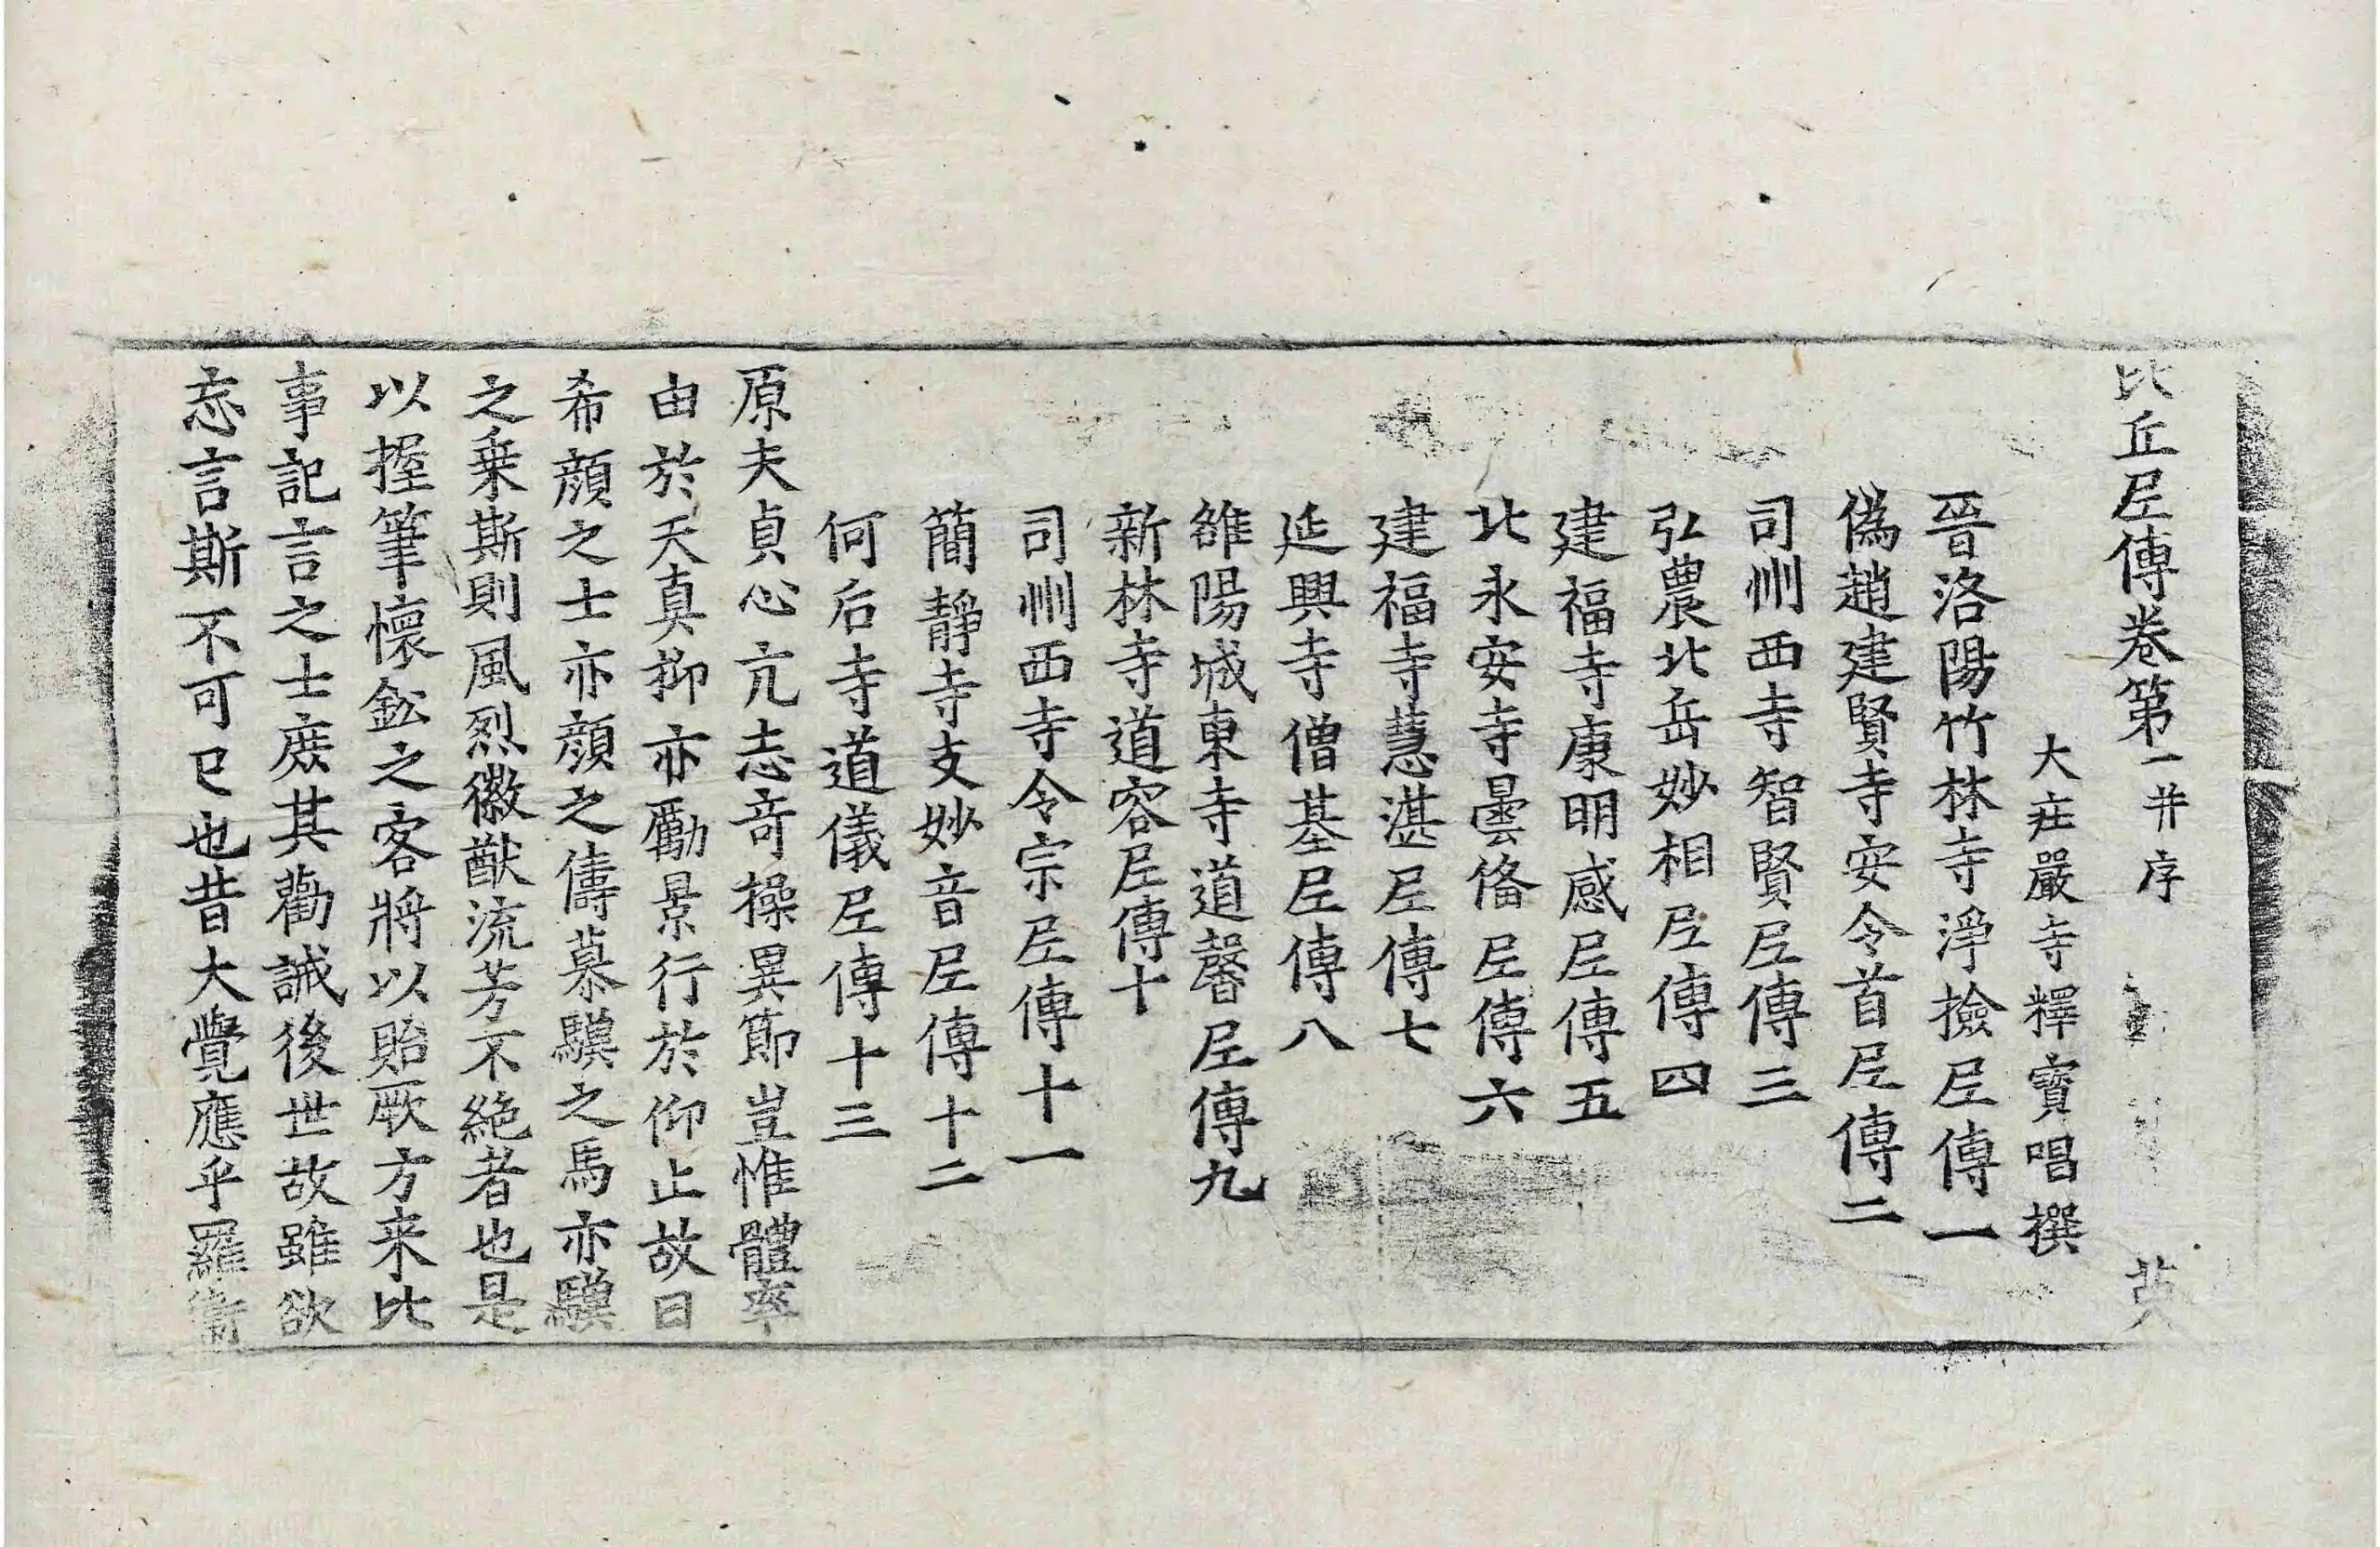 比丘尼傳卷第一并序 英
大莊嚴寺釋寶唱撰
晉洛陽竹林寺淨撿尼傳一
偽趙建賢寺安令首尼傳二
司州西寺智賢尼傳三
弘農北岳妙相尼傳四
建福寺康明感尼傳五
北永安寺曇俻尼傳六
建福寺慧湛尼傳七
延興寺僧基尼傳八
雒陽城東寺道馨尼傳九
新林寺道容尼傳十
司州西寺令宗尼傳十一
簡靜寺支妙音尼傳十二
何后寺道儀尼傳十三
原夫貞心亢志奇操異節豈惟體率
由於天真抑亦勵景行於仰止故曰
希顏之士亦顏之儔慕驥之馬亦驥
之乗斯則風烈徽猷流芳不絕者也是
以握筆懷鈆之客將以貽厥方来比
事記言之士庻其勸誡後世故雖欲
忘言斯不可已也昔大覺應乎羅衛